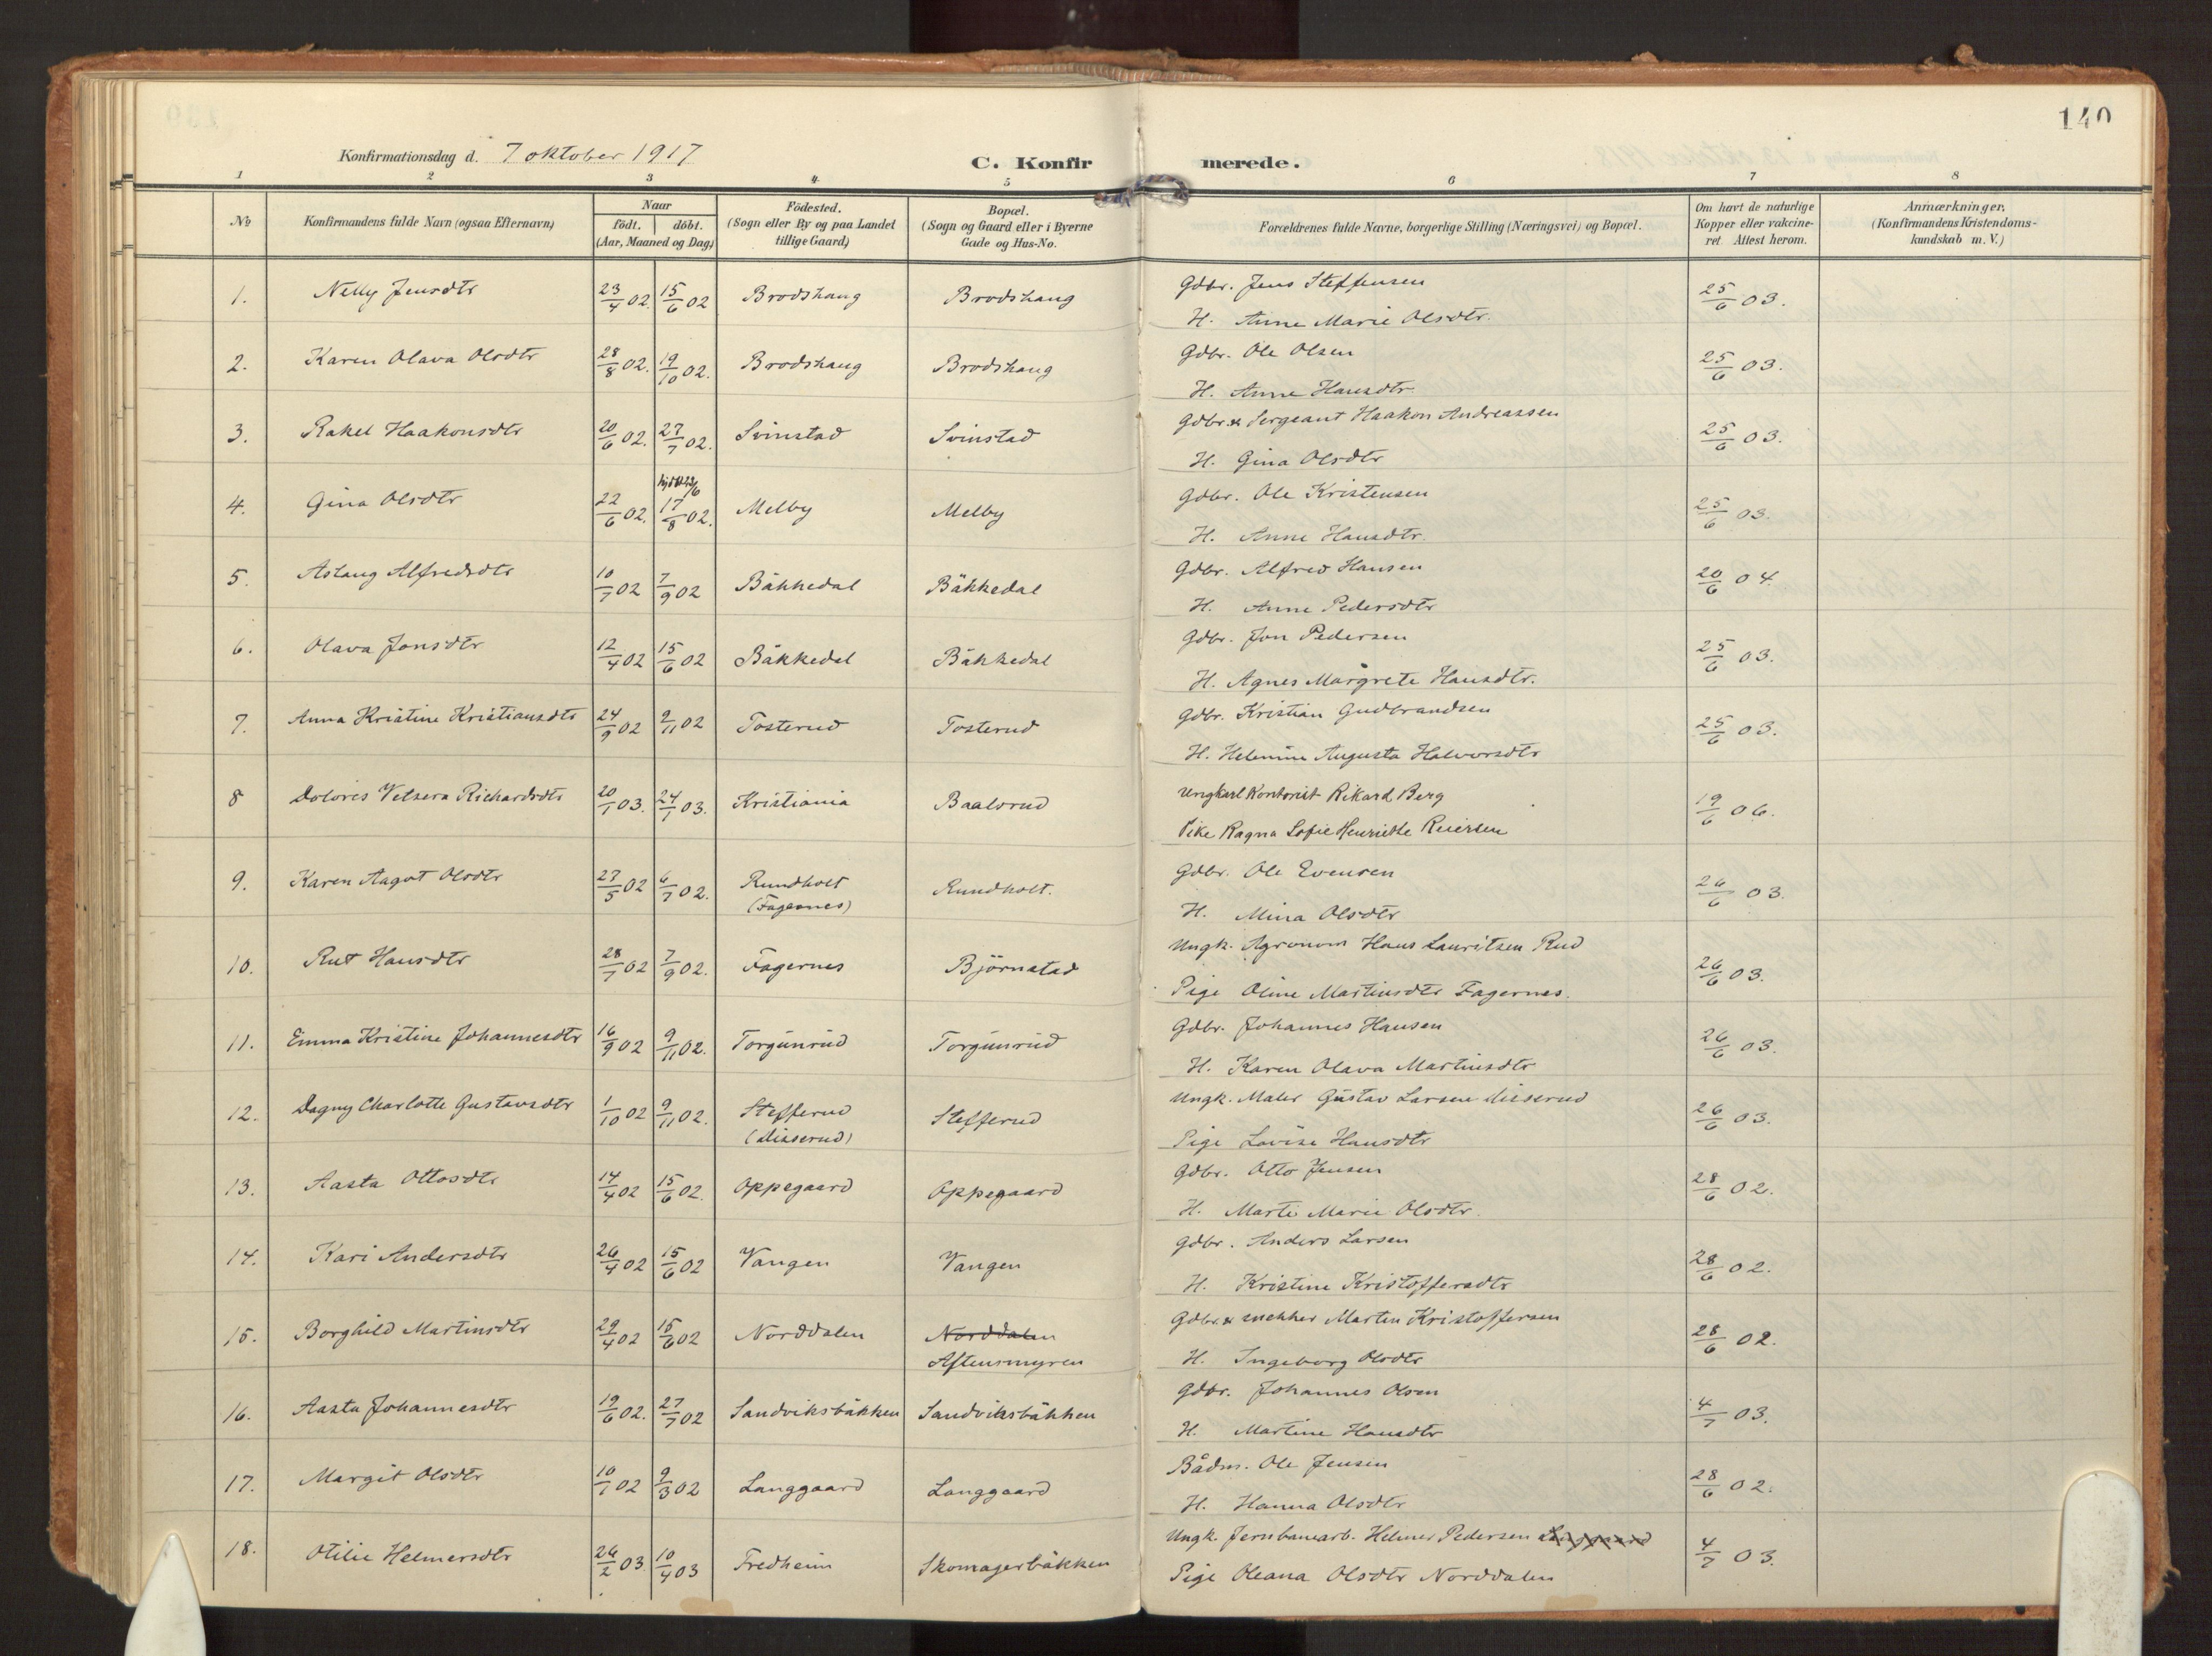 140
Konfirmationsdag d. 7 oktober 1917
C. Konfirmerede.
1 2 3 4 5 6 7 8
No
Konfirmandens fulde Navn (ogsaa Efternavn)
Naar
født. døbt.
(Aar, Maaned og Dag)
Fødested.
(Sogn eller By og paa Landet
tillige Gaard)
Bopæl.
(Sogn og Gaard eller i Byerne
Gade og Hus-No.
Forældrenes fulde Navne, borgerlige Stilling (Næringsvei) og Bopæl.
Om havt de naturlige
Kopper eller vakcine-
ret. Attest herom.
Anmærkninger,
(Konfirmandens Kristendoms-
kundskab m. V.)
1. Nelly Jensdtr 23/4 02. 15/6 02 Brodshaug Brodshaug Gdbr. Jens Steffensen 25/6 03.
H. Anne Marie Olsdtr.
2. Karen Olava Olsdtr 28/8 02. 19/10 02. Brodshaug Brodshaug Gdbr. Ole Olsen 25/6 03.
H. Anne Hansdtr.
3. Rakel Haakonsdtr 20/6 02. 27/7 02. Svinstad Svinstad Gdbr. & Sergeant Haakon Andreassen 25/6 03.
H. Gina Olsdtr
4. Gina Olsdtr 22/6 02. 17/8 02. Melby Melby Gdbr. Ole Kristensen 25/6 03.
H. Anne Hansdtr.
5. Aslaug Alfredsdtr 10/7 02 7/9 02 Bäkkedal Bäkkedal Gdbr. Alfred Hansen 20/6 04.
H. Anne Pedersdtr
6. Olava Jonsdtr 12/4 02 15/6 02 Bäkkedal Bäkkedal Gdbr. Jon Pedersen 25/6 03.
H. Agnes Margrete Hansdtr.
7. Anna Kristine Kristiansdtr 24/9 02 9/11 02 Tosterud Tosterud Gdbr. Kristian Gudbrandsen 25/6 03.
H. Helmine Augusta Halvorsdtr
8 Dolores Vetsera Richardsdtr 20/1 03. 24/1 03. Kristiania Baalsrud Ungkarl Kontorist Rikard Berg 19/6 06.
Pike Ragna Sofie Henriette Reiersen
9. Karen Aagot Olsdtr 27/5 02 6/7 02. Rundholt Rundholt. Gdbr. Ole Evensen 26/6 03.
(Fagernes) H. Mina Olsdtr
10. Rut Hansdtr 28/7 02 7/9 02. Fagernes Björnstad Ungk. Agronom Hans Lauritsen Rud 26/6 03.
Pige Oline Martinsdtr Fagernes.
11. Emma Kristine Johannesdtr 16/9 02 9/11 02. Torgunrud Torgunrud Gdbr. Johannes Hansen 26/6 03.
H. Karen Olava Martinsdtr
12. Dagny Charlotte Gustavsdtr 1/10 02 9/11 02. Stefferud Stefferud Ungk. Maler Gustav Larsen Disserud 26/6 03.
(Disserud) Pige Lovise Hansdtr
13. Aasta Ottosdtr 14/4 02 15/6 02. Oppegaard Oppegaard Gdbr. Otto Jensen 28/6 02.
H. Marte Marie Olsdtr.
14. Kari Andersdtr 26/4 02 15/6 02 Vangen Vangen Gdbr. Anders Larsen 28/6 02.
H. Kristine Kristoffersdtr
15. Borghild Martinsdtr 29/4 02 15/6 02 Norddalen Norddalen Gdbr. & snekker Martin Kristoffersen 28/6 02.
Aftensmyren H. Ingeborg Olsdtr
16. Aasta Johannesdtr 19/6 02. 27/7 02 Sandviksbäkken Sandviksbäkken Gdbr. Johannes Olsen 4/7 03.
H. Martine Hansdtr
17. Margit Olsdtr 10/1 02 9/3 02 Langgaard Langgaard Bådm. Ole Jensen 28/6 02.
H. Hanna Olsdtr
18. Otilie Helmersdtr 26/2 03. 10/4 03 Fredheim Skomagerbäkken Ungk. Jernbanearb. Helmer Pedersen 4/7 03.
Pige Oleana Olsdtr Norddalen